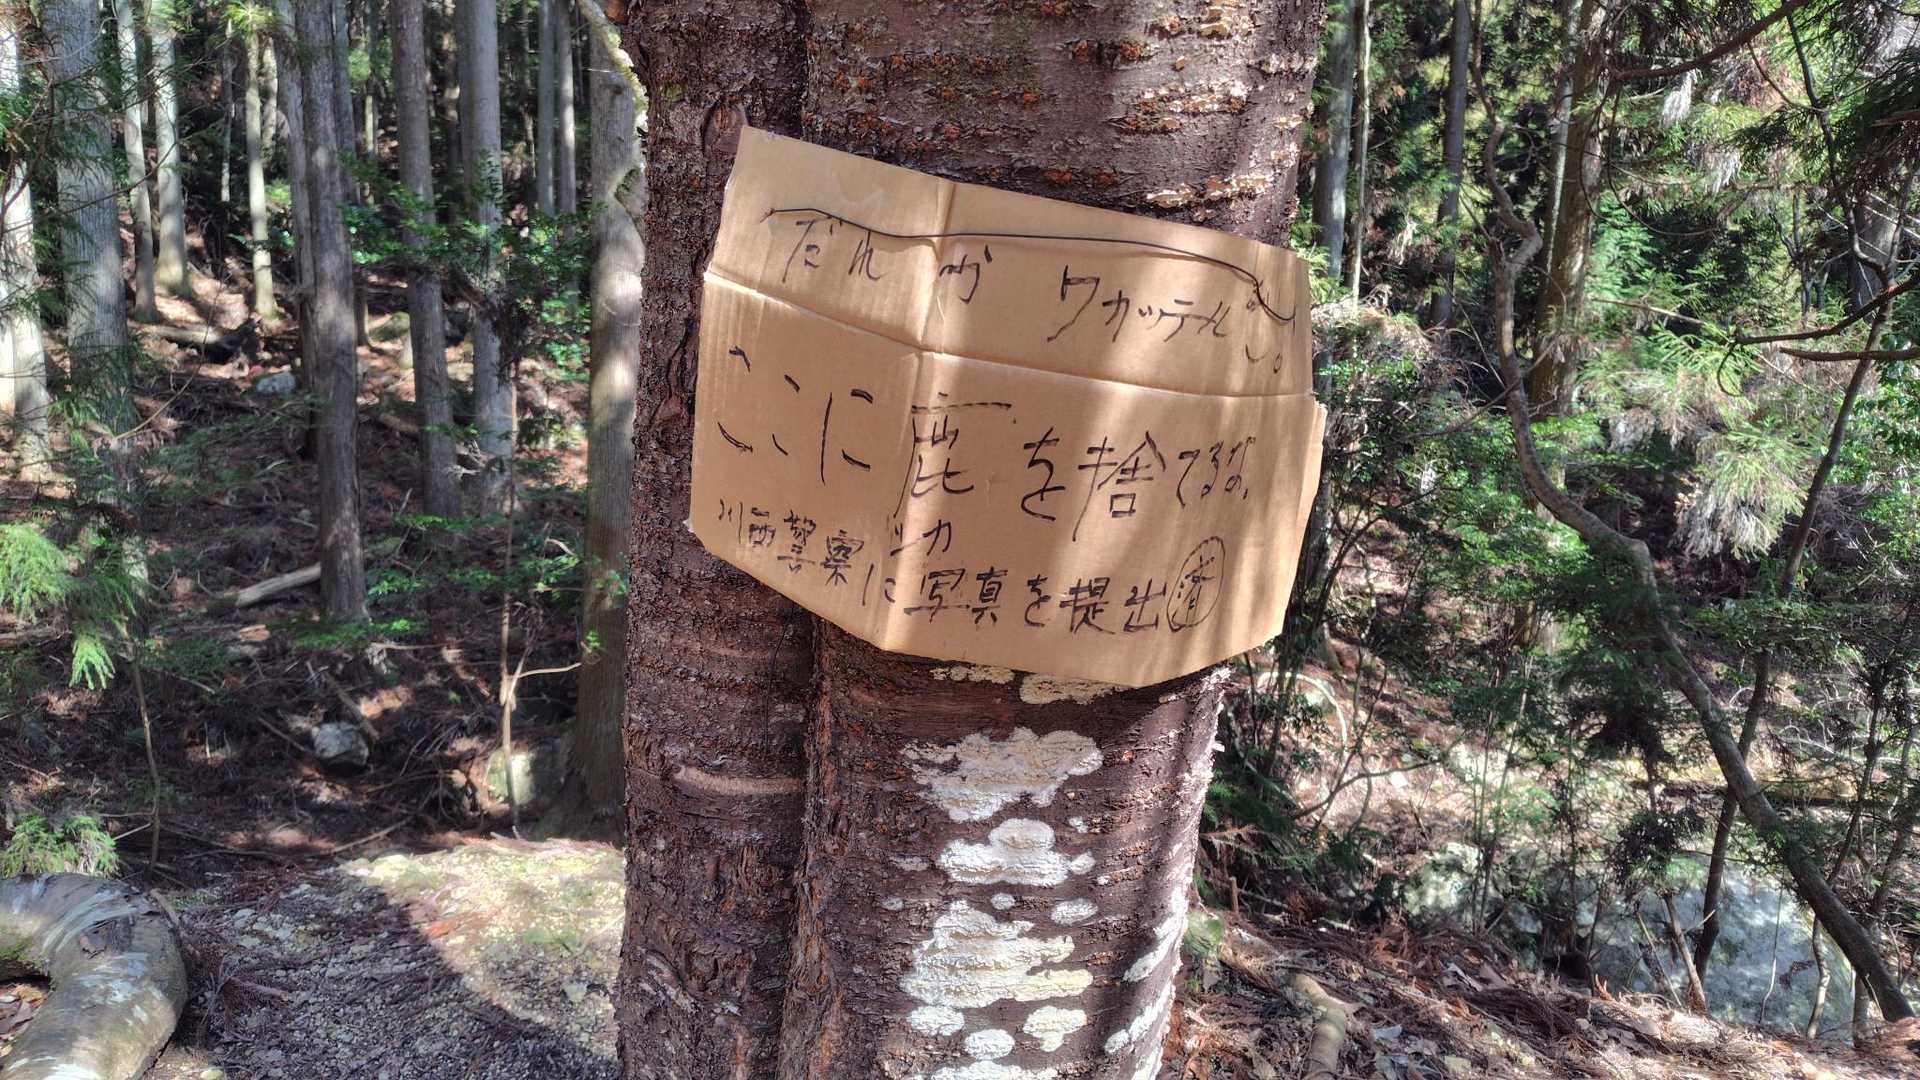 だれかワカッテルよ。
ここに鹿を捨てるな。
シカ
川西警察に写真を提出済